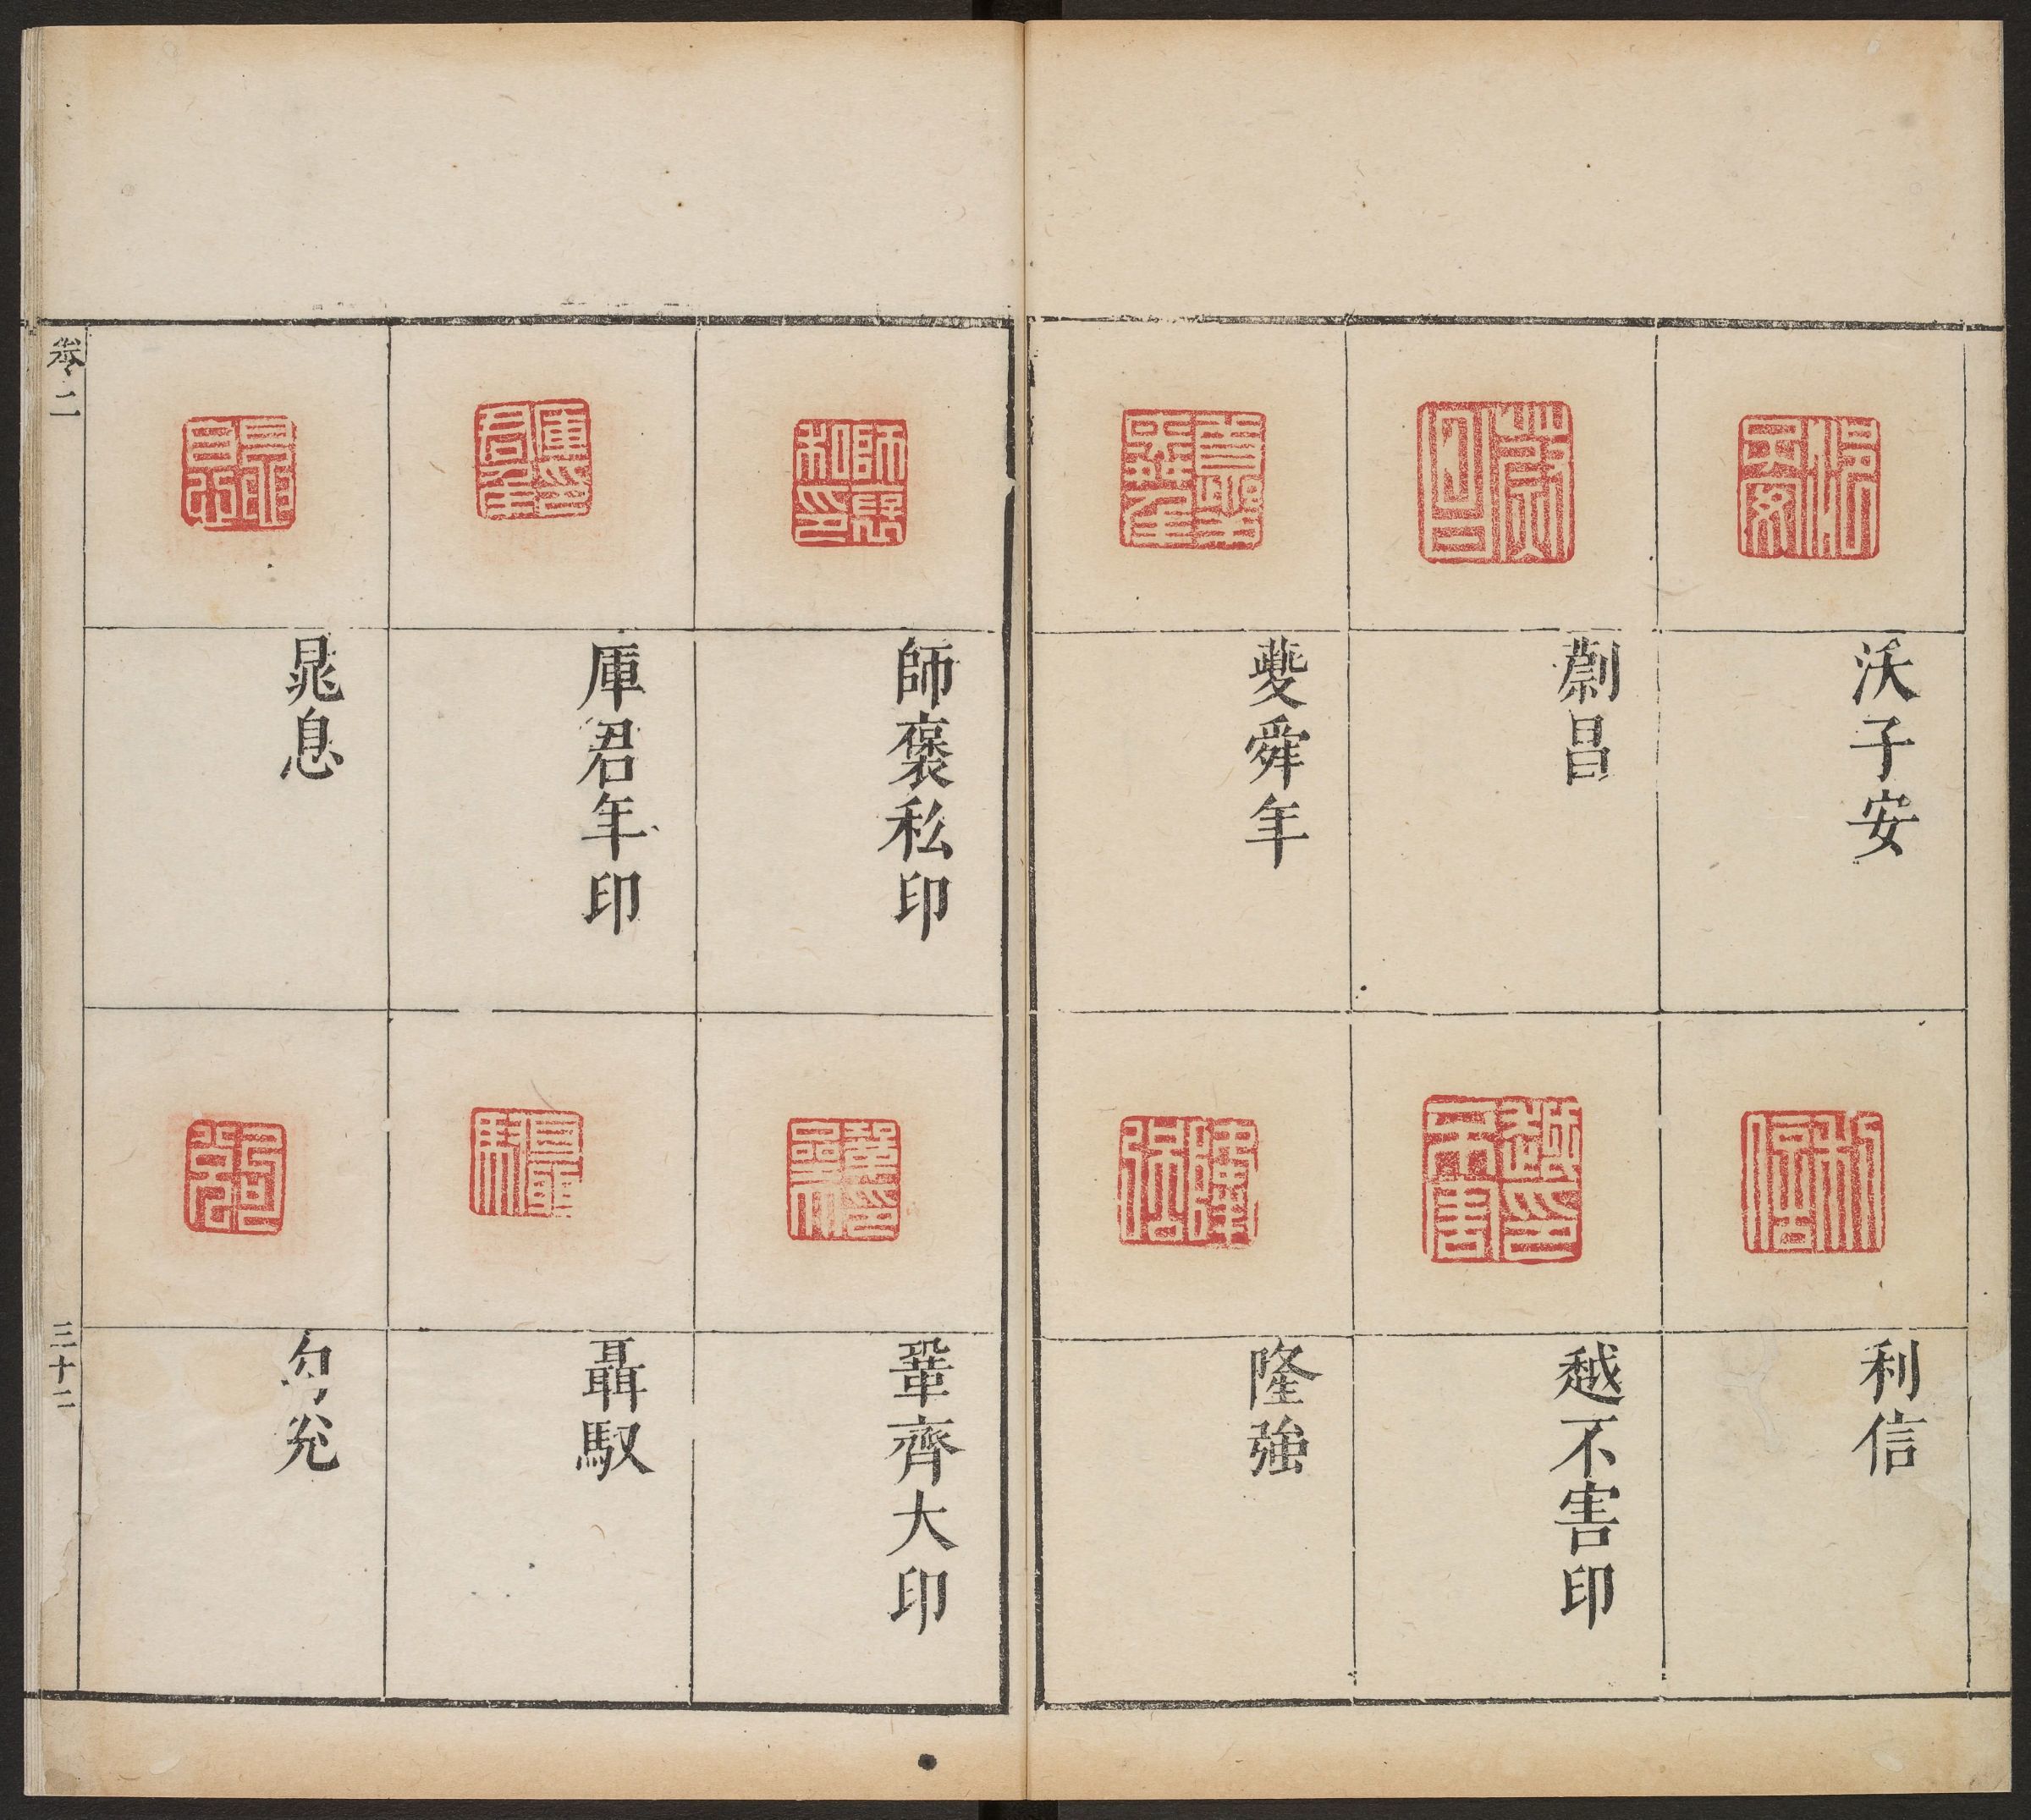 沃子安
蒯昌
夔舜年
利信
越不害印
隆強
師褒私印
厙君年印
晁息
鞏齊大印
聶馭
勾兊
卷二
三十二